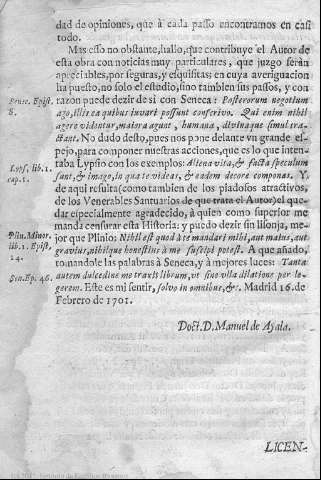 dad de opiniones, que à cada passo encontramos en casi
todo.
Mas esso no obstante, hallo, que contribuye el Autor de
esta obra con noticias muy particulares, que juzgo serán
apreciables, por seguras, y esquisitas; en cuya averiguacion
ha puesto, no solo el estudio, sino tambien sus passos, y con
Senec. Epist. 8.
razon puede dezir de si con Seneca: Posterorum negotium
ago, illis ea quibus iuvari possunt conscrivo. Qui enim nihil
agere videntur, maiora agunt, humana, divinaque simul tra-
ctant. No dudo desto, pues nos pone delante vn grande es-
pejo, para componer nuestras acciones, que es lo que inten-
Lyps. lib. 1. cap. 1.
taba Lypsio con los exemplos: Aliena vita, & facta speculum
sunt, & imago, in qua te videas, & eadem decore componas. Y
de aqui resulta (como tambien de los piadosos atractivos,
de los Venerables Santuarios de que trata el Autor) el que-
dar especialmente agradecido, à quien como superior me
manda censurar esta Historia: y puedo dezir sin lisonja, me-
Plin. Minor. lib. 1. Epist. 24.
jor que Plinio: Nihil est quod à te mandari mihi, aut maius, aut
gravius, nihilque honestius à me suscipi potest. A que añado,
tomandole las palabras à Seneca, y à mejores luces: Tanta
Sen. Ep. 46.
autem dulcedine me traxit librum, vt sino vlla dilatione per le-
gerem. Este es mi sentir, salvo in omnibus, &c. Madrid 16. de
Febrero de 1701.
Doct. D. Manuel de Ayala.
LICEN-